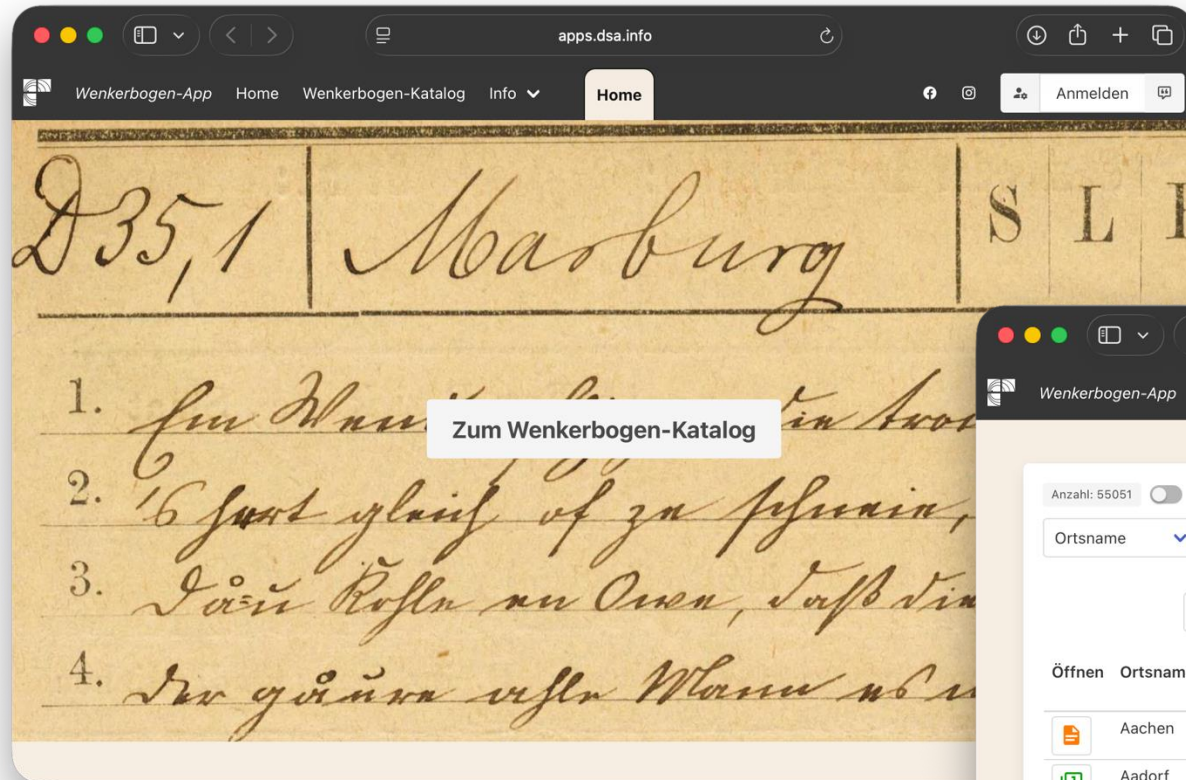 apps.dsa.info
Wenkerbogen-App Home Wenkerbogen-Katalog Info Home Anmelden
D35,1 Marburg S L
1. Em Die troc
Zum Wenkerbogen-Katalog
2. 's hert gleich of ze schneie,
3. Dåu Kohle en Owe, daß die
4. Der gåure ahle Mann es
Wenkerbogen-App
Anzahl: 55051
Ortsname
Öffnen Ortsnam
Aachen
Aadorf